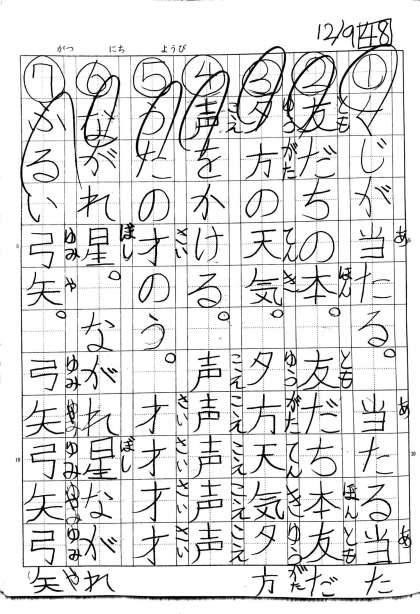 12/9 48
がつ にち ようび
①くじが当たる。当たる当た
あ あ あ
②友だちの本。友だち本友だ
とも ほん とも ほん とも
③夕方の天気。夕方天気夕方
ゆう がた てん き ゆう がた てん き ゆう がた
④声をかける。声声声声声
こえ こえ こえ こえ こえ こえ
⑤うたの才のう。才才才才
さい さい さい さい さい
⑥ながれ星。ながれ星ながれ
ぼし ぼし
⑦かるい弓矢。弓矢弓矢弓矢
ゆみ や ゆみ や ゆみ や ゆみ や